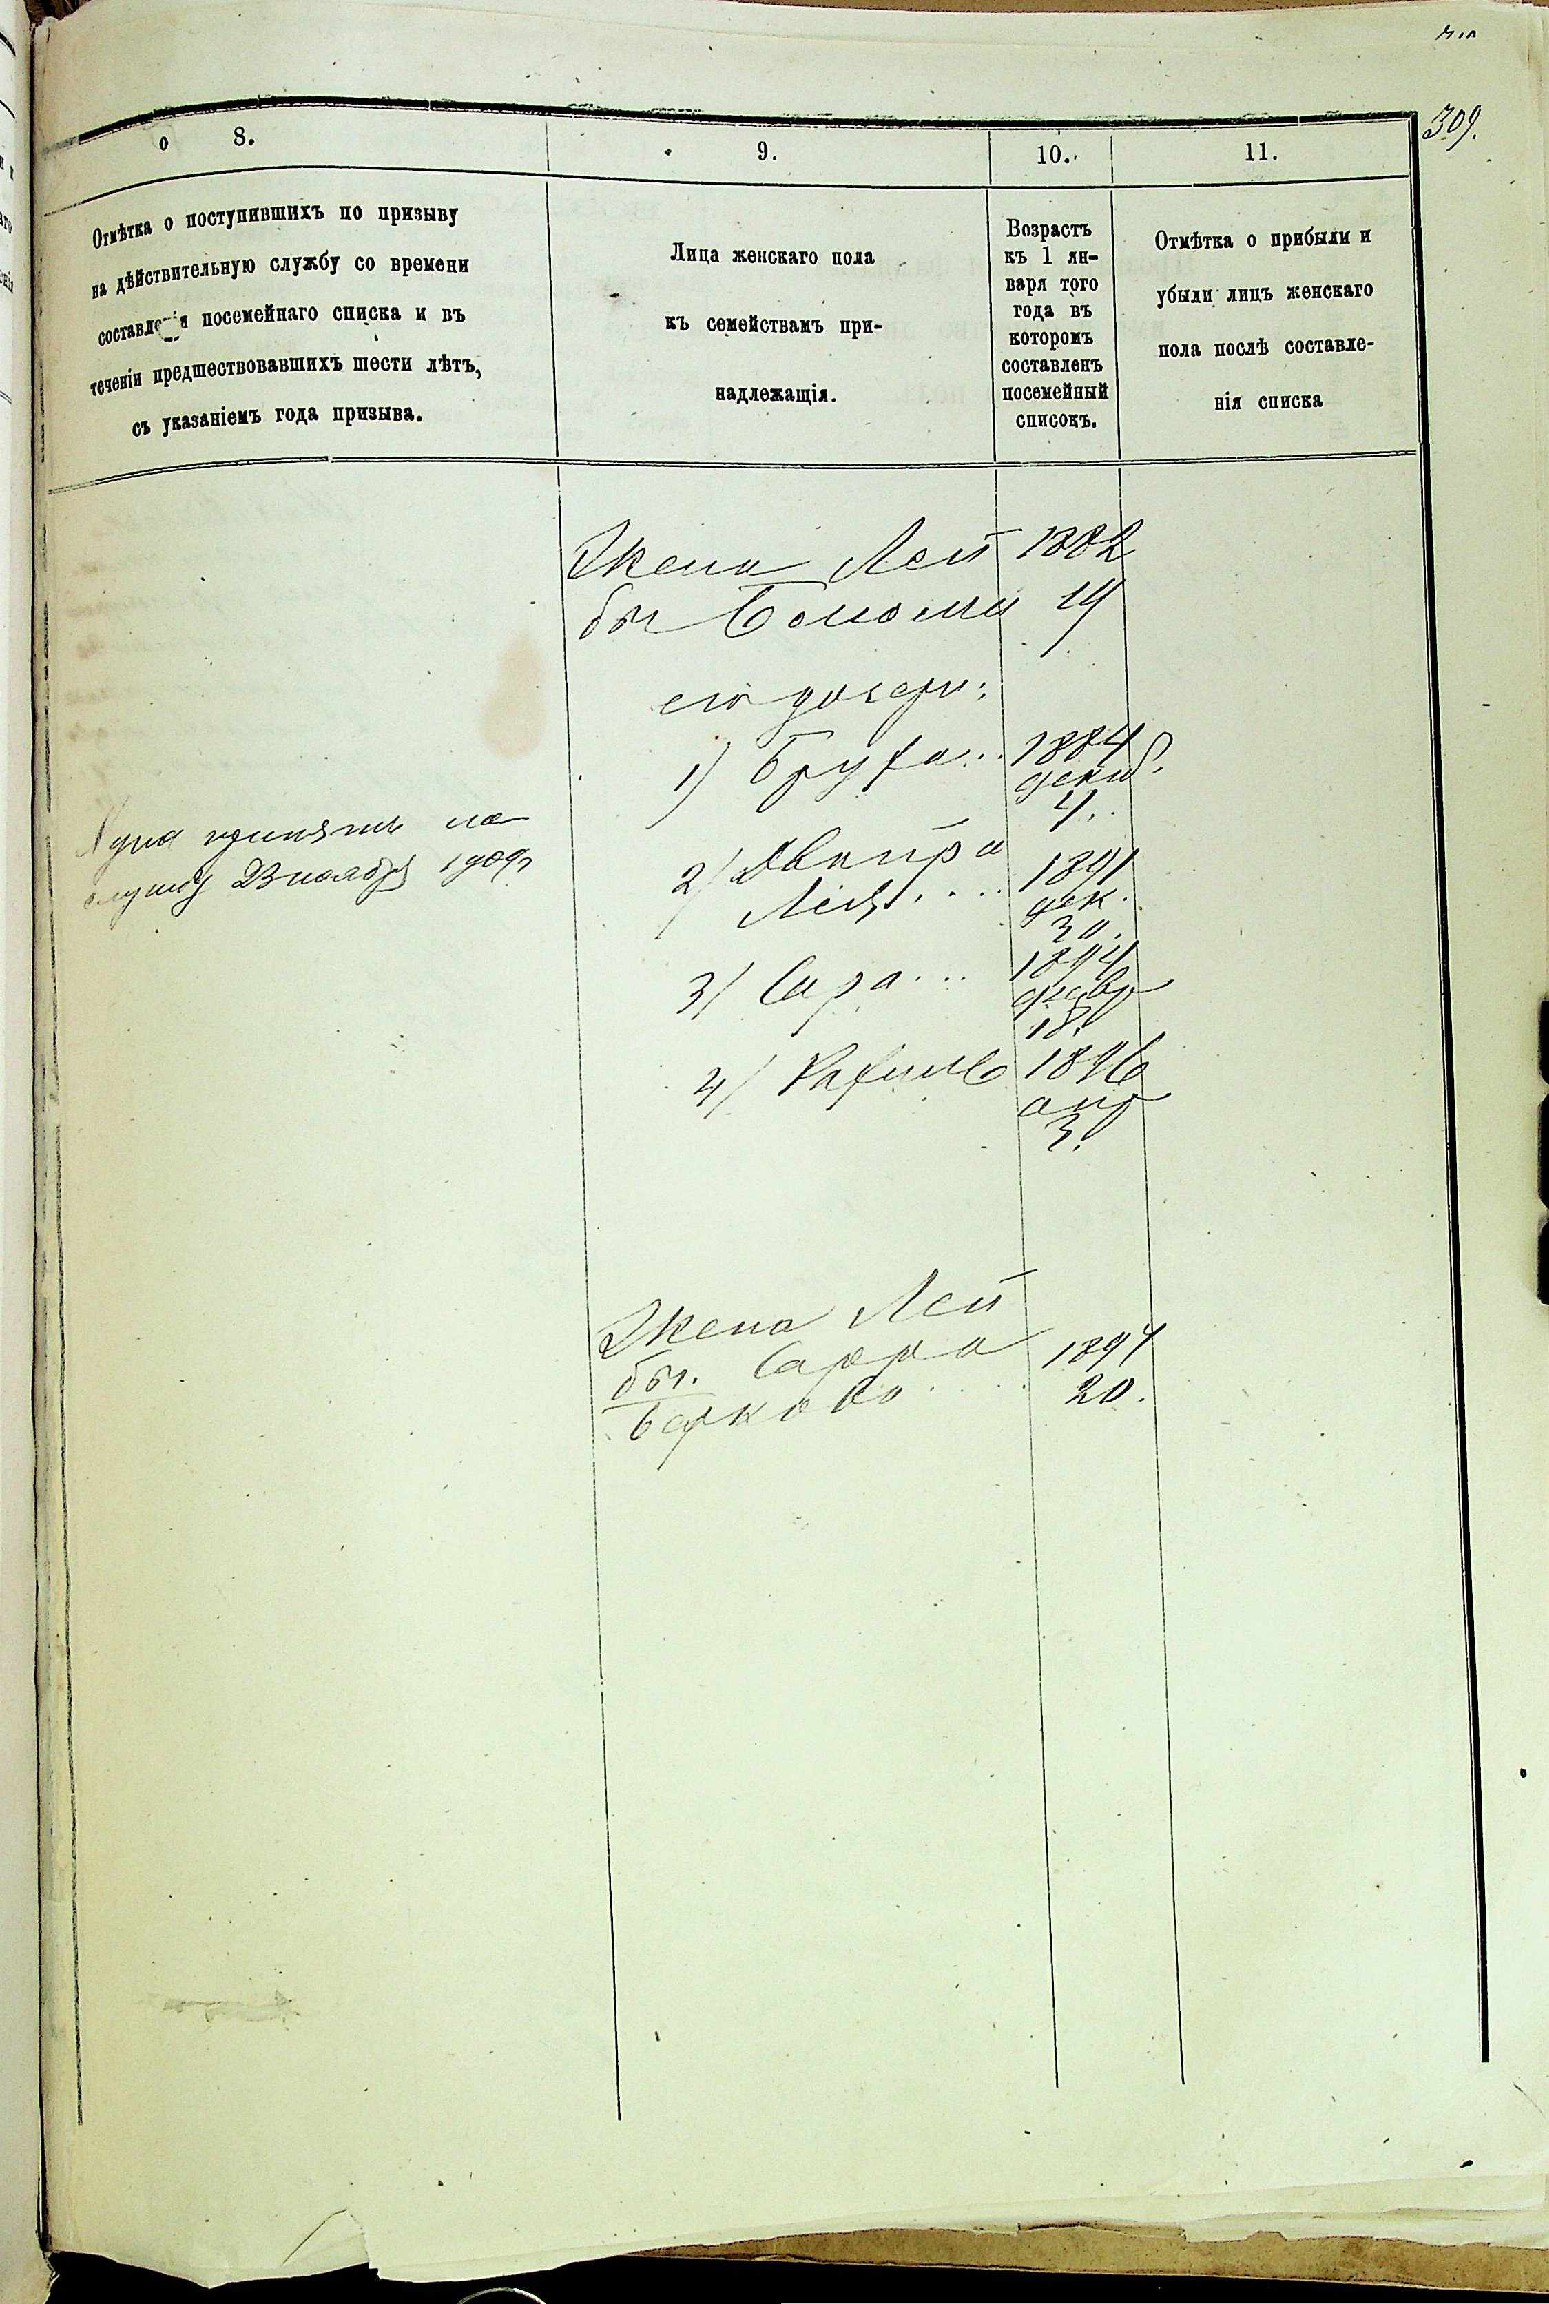 309.
8.
9.
10.
11.
Отмѣтка о поступившихъ по призыву
на дѣйствительную службу со времени
составленія посемейнаго списка и въ
теченіи предшествовавшихъ шести лѣтъ,
съ указаніемъ года призыва.
Лица женскаго пола
къ семействамъ при-
надлежащія.
Возрастъ
къ 1 ян-
варя того
года въ
которомъ
составленъ
посемейный
списокъ.
Отмѣтка о прибыли и
убыли лицъ женскаго
пола послѣ составле-
нія списка
Жена Лей 1882
бы 19
его дочери:
1) Бруха... 1884
декаб.
4.
2) Двейра
Лея.... 1891
дек.
30.
3) Сара... 1894
февр
18.
4) Рахиль 1896
апр
3.
принятъ на
службу 23 ноября 1909г
Жена Лей
бы. Сарра 1897
Беркова.... 20.